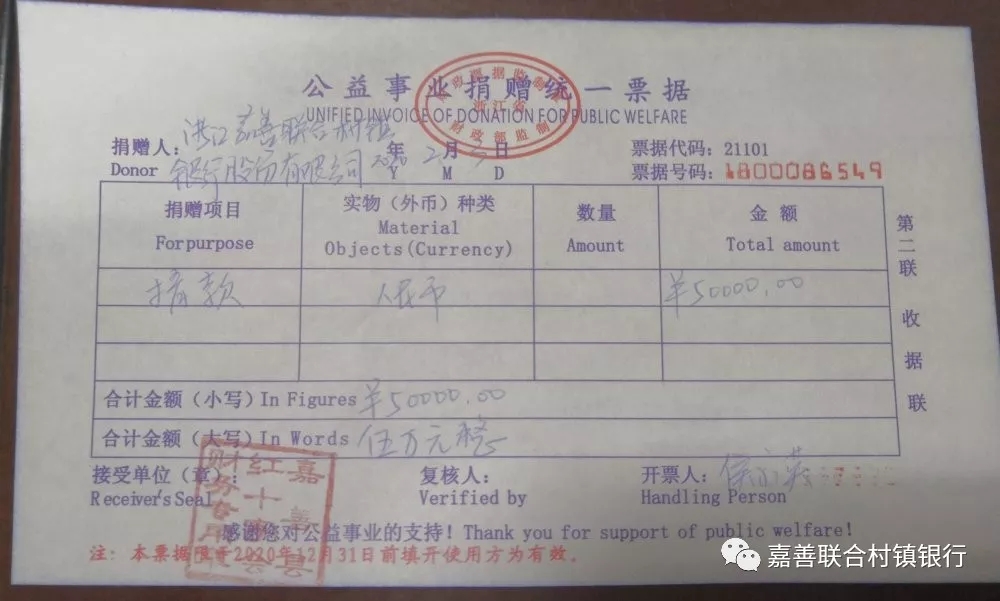 公益事业捐赠统一票据
UNIFIED INVOICE OF DONATION FOR PUBLIC WELFARE
浙江省
财政部监制
捐赠人：浙江嘉善联合村镇
Donor 银行股份有限公司
2020年2月3日
Y M D
票据代码：21101
票据号码：1800086549
捐赠项目
For purpose
实物（外币）种类
Material
Objects(Currency)
数量
Amount
金 额
Total amount
捐款
人民币
¥50000.00
合计金额（小写）In Figures ¥50000.00
合计金额（大写）In Words 伍万元整
第二联 收据联
接受单位（章）：
Receiver's Seal
复核人：
Verified by
开票人：
Handling Person
嘉善县
红十字会
财务专用
感谢您对公益事业的支持！Thank you for support of public welfare!
注：本票据限于2020年12月31日前填开使用方为有效。
嘉善联合村镇银行